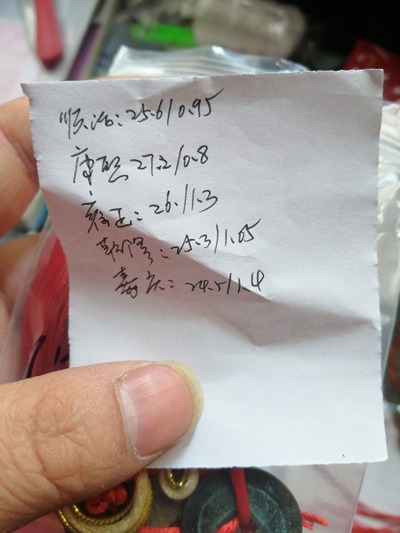 顺治:25.6/0.95
康熙27.2/0.8
雍正:26./1.3
乾隆:25.3/1.05
嘉庆:24.5/1.4